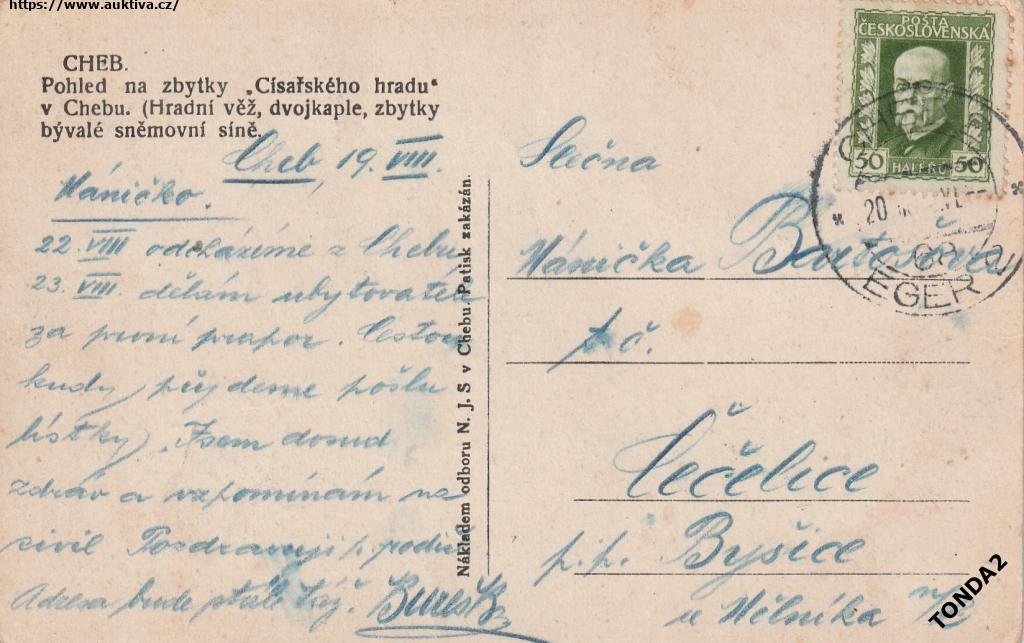 https://www.auktiva.cz/
CHEB.
Pohled na zbytky „Císařského hradu“
v Chebu. (Hradní věž, dvojkaple, zbytky
bývalé sněmovní síně.
Cheb, 19. VIII.
Máničko.
22. VIII odcházíme z Chebu
23. VIII. dělám ubytovatele
za první prapor. Cestou
kudy půjdeme pošlu
lístky. Jsem dosud
zdráv a vzpomínám na
civil. Pozdravuji p. rodiče
Adresa bude stále táž. Bureš
Nákladem odboru N. J. S v Chebu. Patisk zakázán.
POŠTA
ČESKOSLOVENSKÁ
50 HALÉŘŮ 50
20
EGER 2
Slečna
Mánička Bartošova
č.
Čečelice
p. p. Byšice
u Mělníka n/L
TONDA2